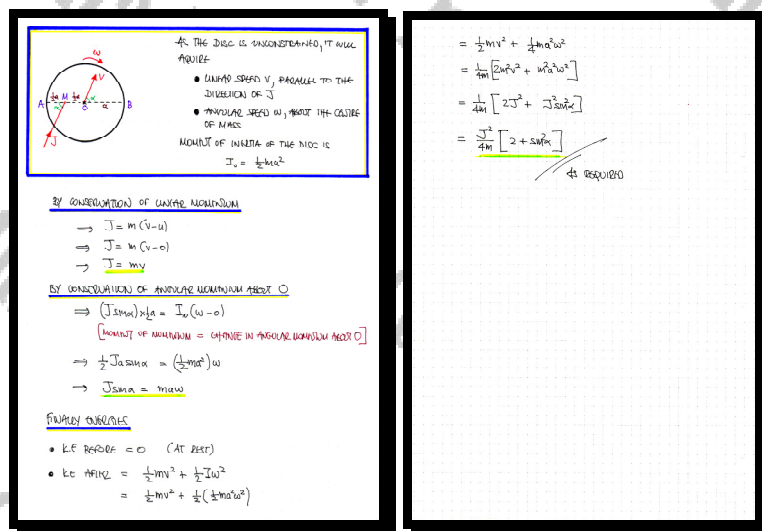 ω
V
½a
M
½a
α
α
A
O
a
B
J
AS THE DISC IS UNCONSTRAINED, IT WILL
AQUIRE
• LINEAR SPEED V, PARALLEL TO THE
DIRECTION OF J
• ANGULAR SPEED ω, ABOUT THE CENTRE
OF MASS
MOMENT OF INERTIA OF THE DISC IS
I₀ = ½ma²
BY CONSERVATION OF LINEAR MOMENTUM
⇒ J = m(v-u)
⇒ J = m(v-0)
⇒ J = mv
BY CONSERVATION OF ANGULAR MOMENTUM ABOUT O
⇒ (Jsinα)×½a = I₀(ω-0)
[MOMENT OF MOMENTUM = CHANGE IN ANGULAR MOMENTUM ABOUT O]
⇒ ½Jasinα = (½ma²)ω
⇒ Jsinα = maω
FINALLY ENERGIES
• K.E BEFORE = 0 (AT REST)
• K.E AFTER = ½mv² + ½Iω²
= ½mv² + ½(½ma²ω²)
= ½mv² + ¼ma²ω²
= 1/4m [2m²v² + m²a²ω²]
= 1/4m [2J² + J²sin²α]
= J²/4m [2 + sin²α]
AS REQUIRED